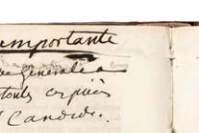 importante
générale a
touts copiés
Candide.